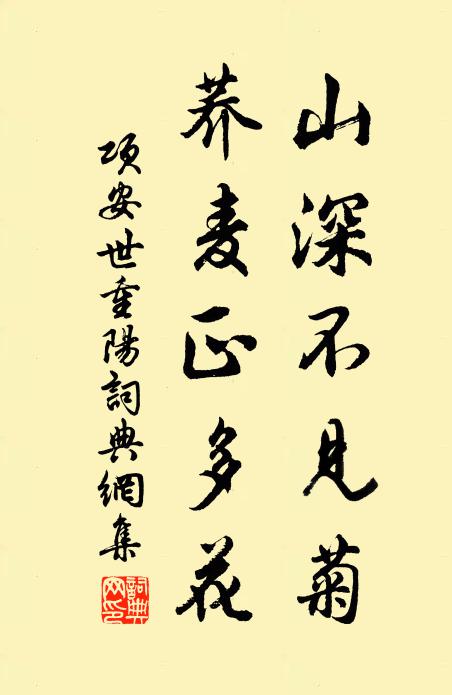 山深不見菊
荞麦正多花
項安世重陽詞典網集
詞典网印